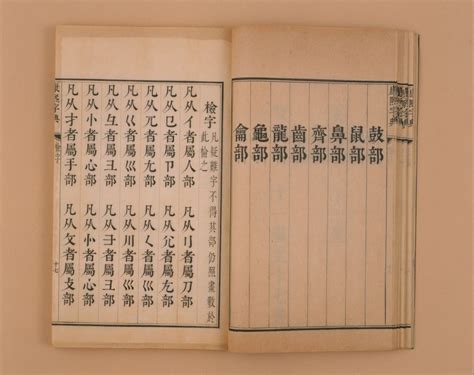 鼓部
鼠部
鼻部
齊部
齒部
龍部
龜部
龠部
檢字 凡疑難字不得其部仍照畫數於此檢之
凡从亻者屬人部 凡从刂者屬刀部
凡从㔾者屬卩部 凡从尣者屬尢部
凡从兀者屬尢部 凡从く者屬巛部
凡从巜者屬巛部 凡从川者屬巛部
凡从彑者屬彐部
凡从忄者屬心部 凡从㣺者屬心部
凡从扌者屬手部 凡从攵者屬攴部
康熙字典 檢字